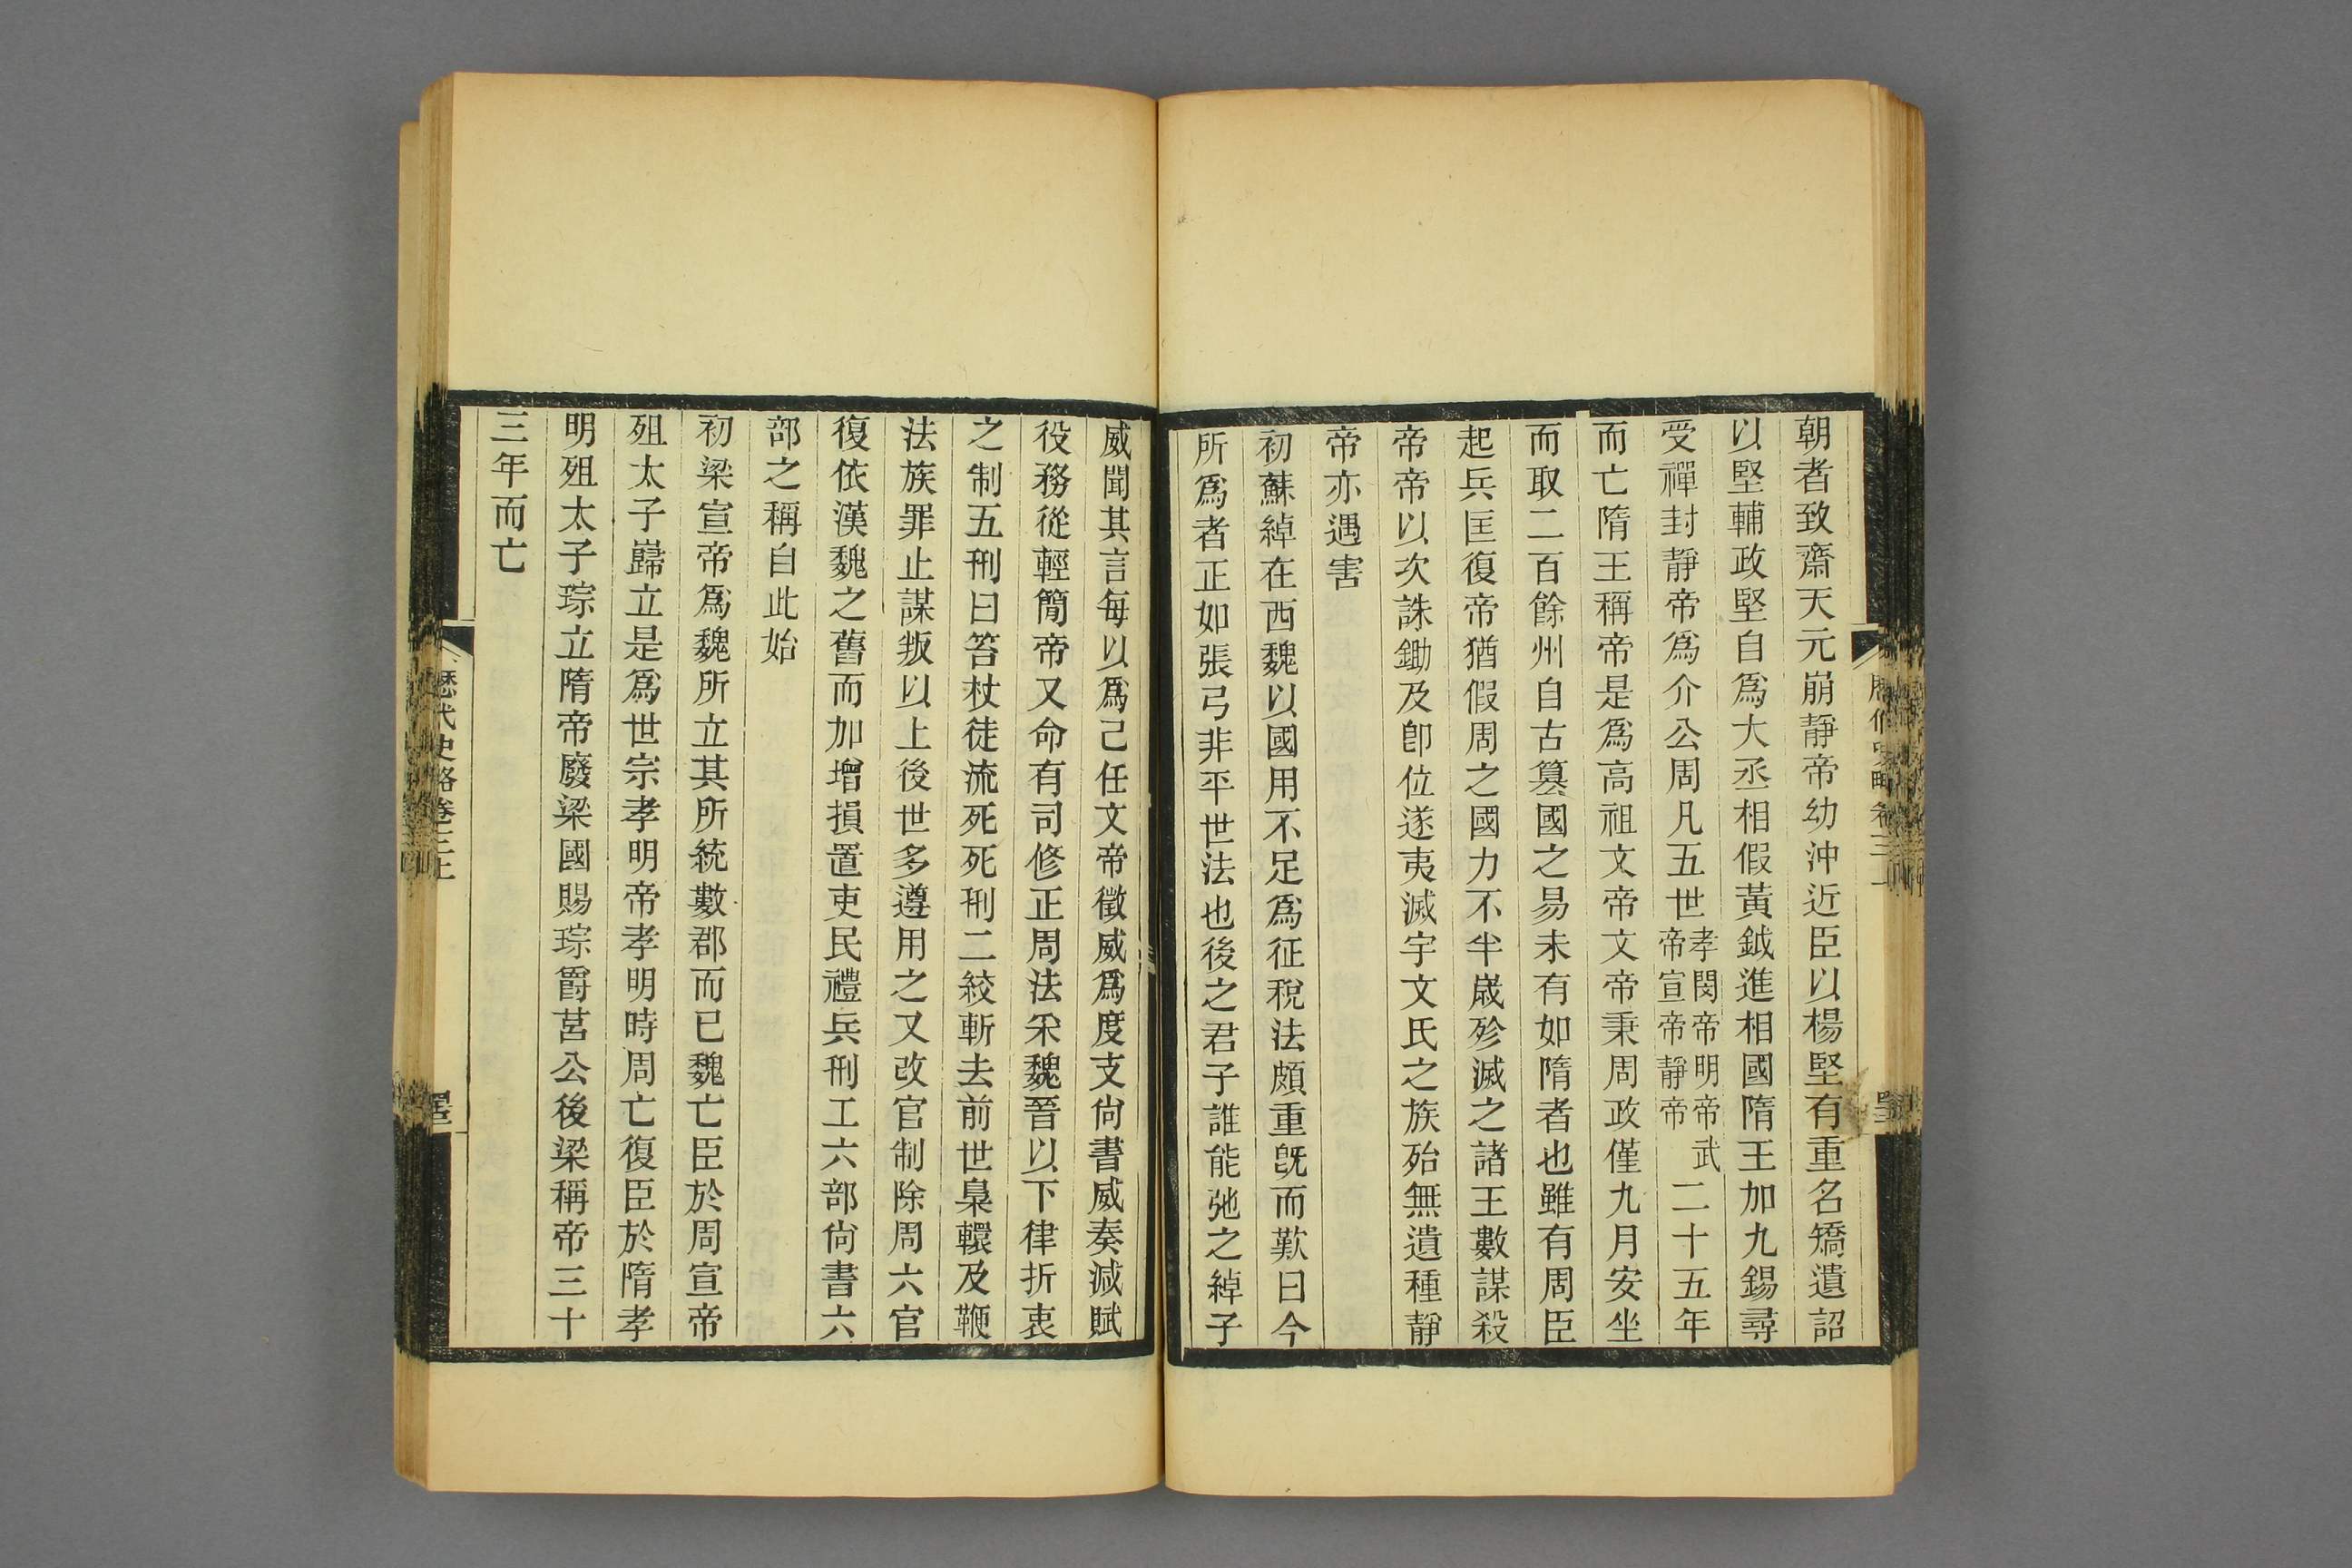 朝者致齋天元崩靜帝幼沖近臣以楊堅有重名矯遺詔
以堅輔政堅自爲大丞相假黃鉞進相國隋王加九錫尋
受禪封靜帝爲介公周凡五世孝閔帝明帝武帝宣帝靜帝二十五年
而亡隋王稱帝是爲高祖文帝文帝秉周政僅九月安坐
而取二百餘州自古簒國之易未有如隋者也雖有周臣
起兵匡復帝猶假周之國力不半歲殄滅之諸王數謀殺
帝帝以次誅鋤及卽位遂夷滅宇文氏之族殆無遺種靜
帝亦遇害
初蘇綽在西魏以國用不足爲征稅法頗重旣而歎曰今
所爲者正如張弓非平世法也後之君子誰能弛之綽子
威聞其言每以爲己任文帝徵威爲度支尙書威奏減賦
役務從輕簡帝又命有司修正周法采魏晉以下律折衷
之制五刑曰笞杖徒流死死刑二絞斬去前世梟轘及鞭
法族罪止謀叛以上後世多遵用之又改官制除周六官
復依漢魏之舊而加增損置吏民禮兵刑工六部尙書六
部之稱自此始
初梁宣帝爲魏所立其所統數郡而已魏亡臣於周宣帝
殂太子巋立是爲世宗孝明帝孝明時周亡復臣於隋孝
明殂太子琮立隋帝廢梁國賜琮爵莒公後梁稱帝三十
三年而亡
歷代史略卷三上